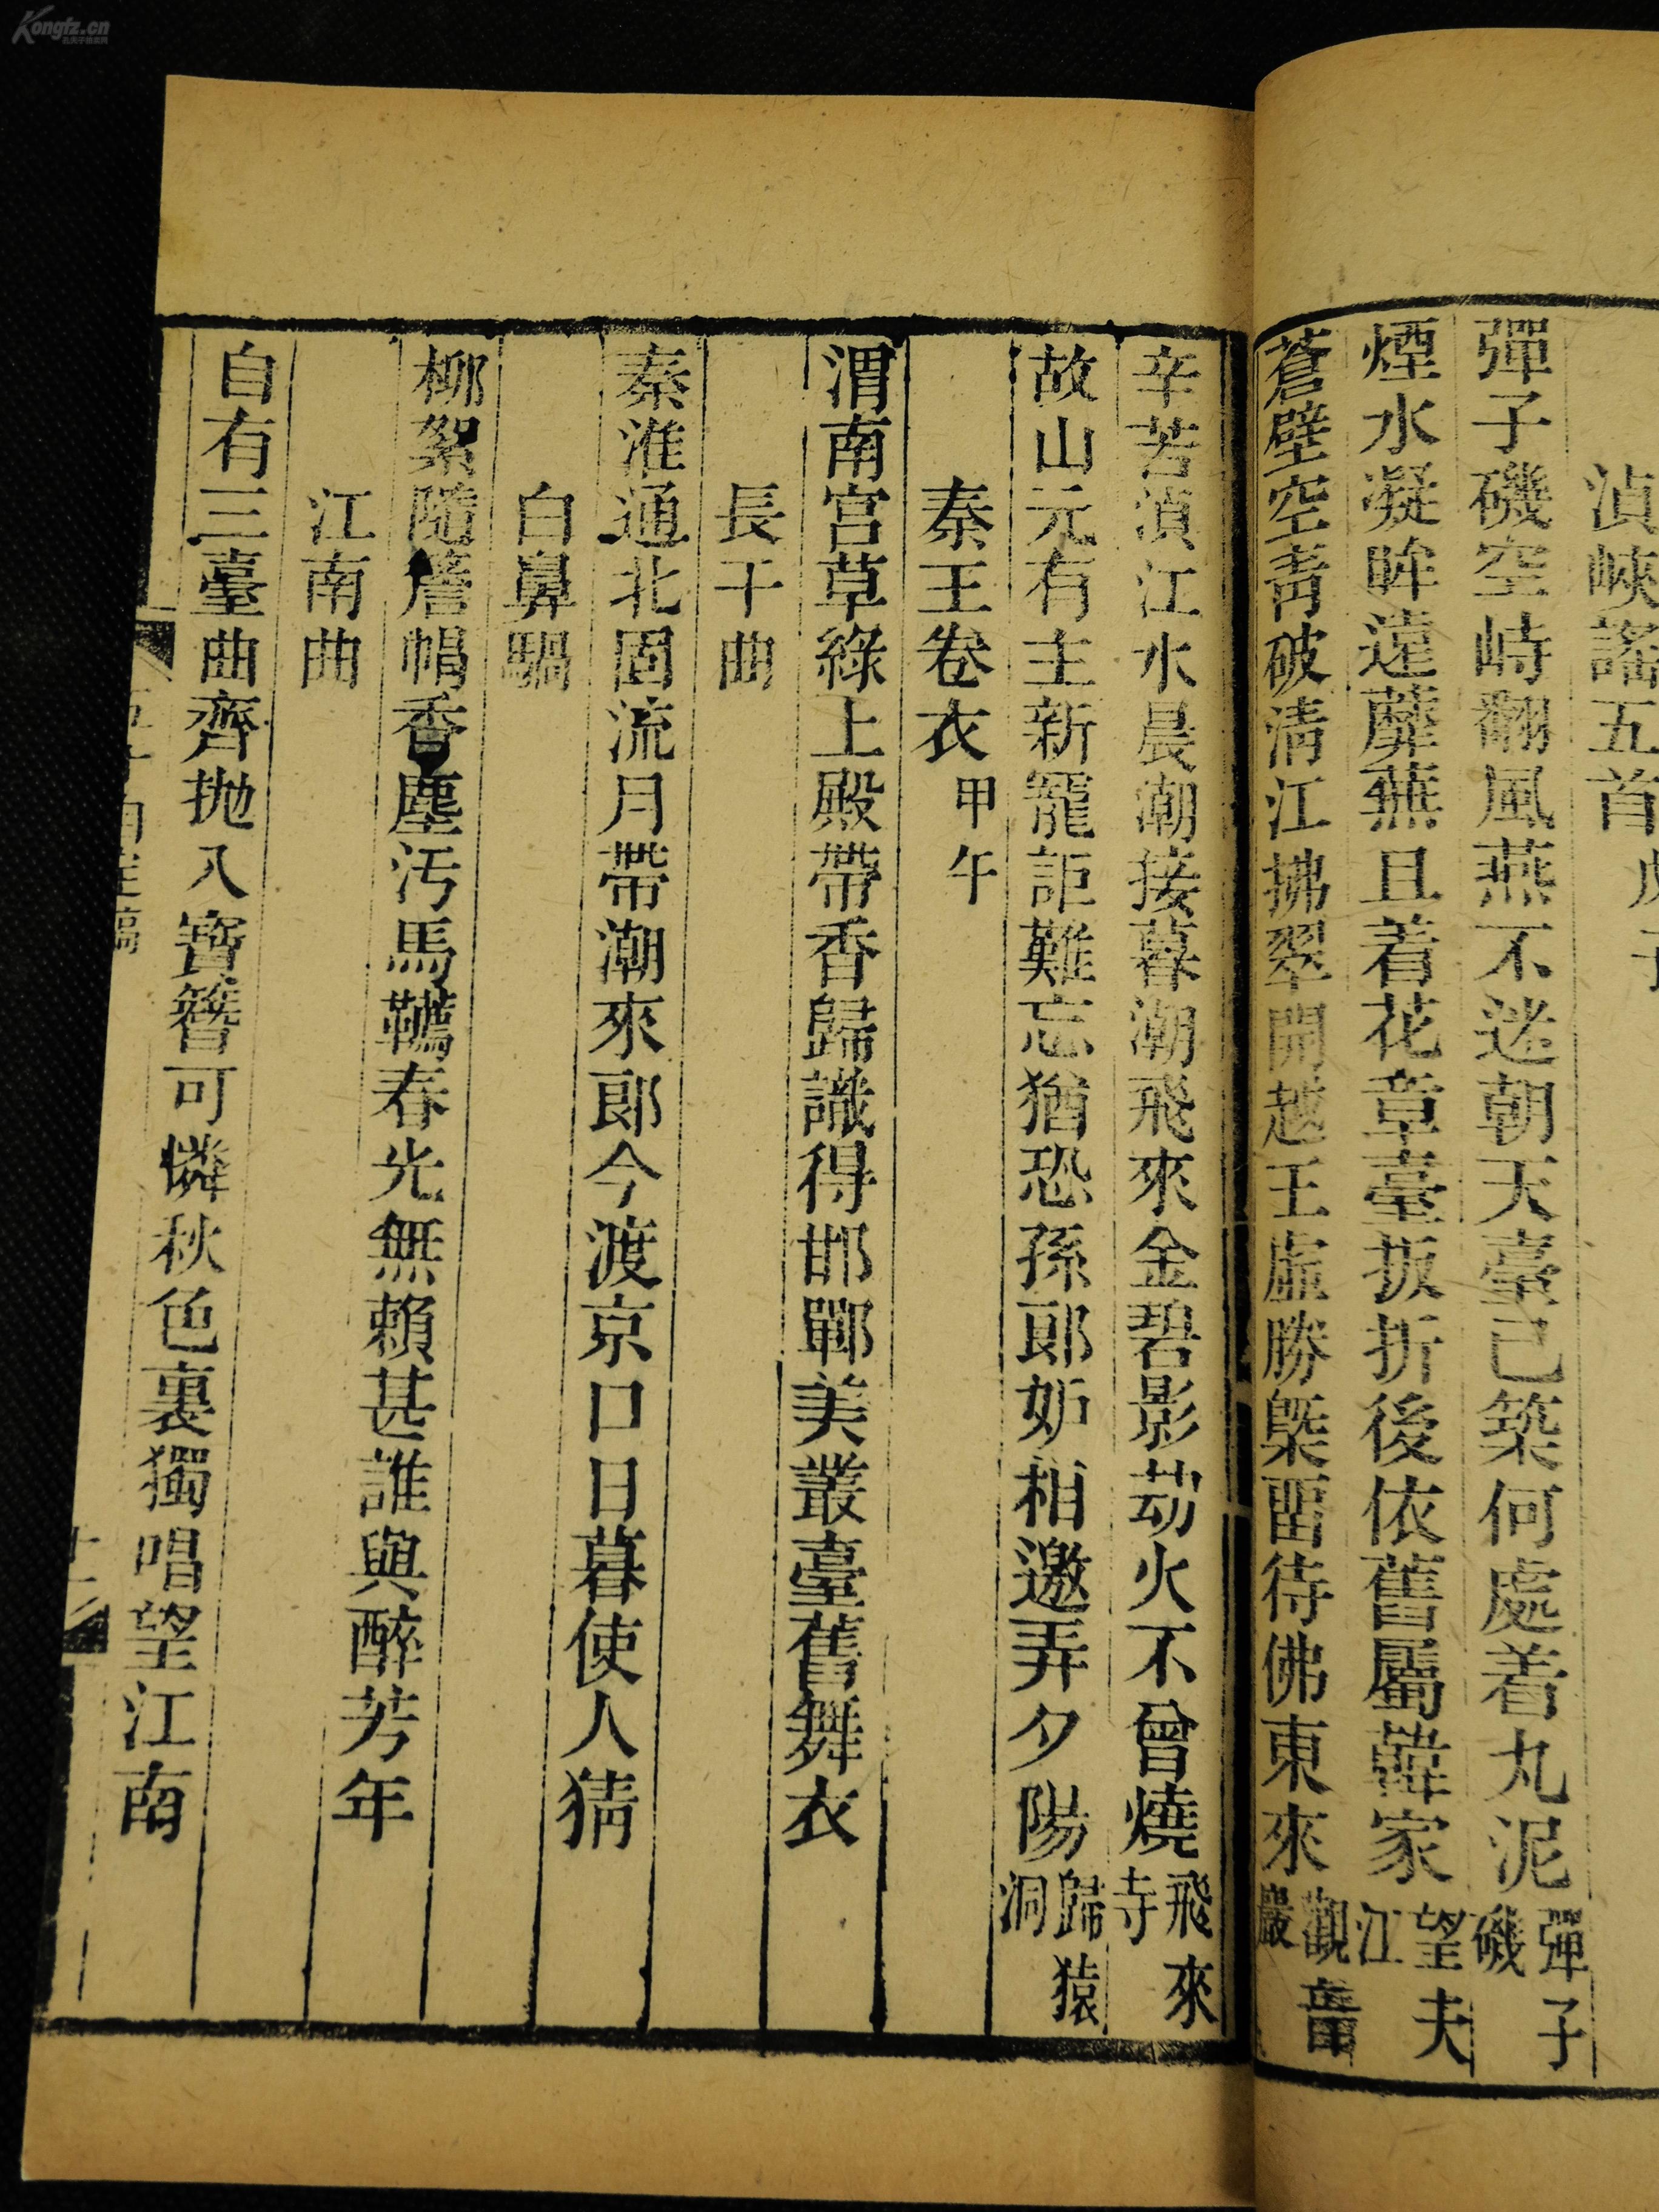 湞峽謠五首
彈子磯空峙翻風燕不迷朝天臺已築何處着丸泥 彈子磯
煙水凝眸遠蘼蕪且着花章臺扳折後依舊屬韓家 望夫江
蒼壁空靑破淸江拂翠開越王虛勝槩畱待佛東來 觀音巖
辛苦湞江水晨潮接暮潮飛來金碧影劫火不曾燒 飛來寺
故山元有主新寵詎難忘猶恐孫郎妒相邀弄夕陽 歸猿洞
秦王卷衣 甲午
渭南宮草綠上殿帶香歸識得邯鄲美叢臺舊舞衣
長干曲
秦淮通北固流月帶潮來郎今渡京口日暮使人猜
白鼻騧
柳絮隨簷帽香塵汚馬韉春光無賴甚誰與醉芳年
江南曲
自有三臺曲齊抛入寶簪可憐秋色裏獨唱望江南
十二
Kongfz.cn